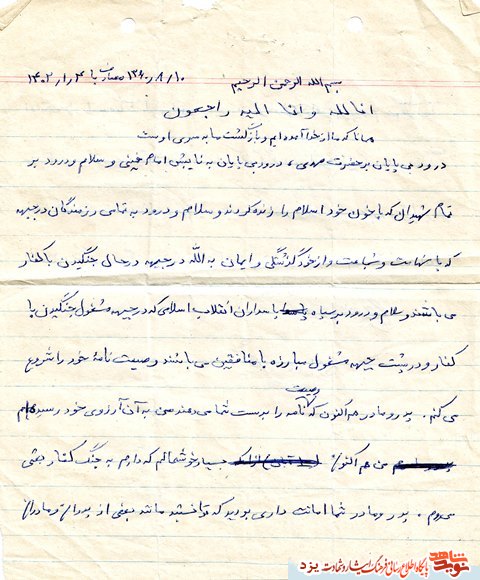 بسم الله الرحمن الرحیم ۱۳۶۰/۸/۱۰ مصادف با ۴/۱/۱۴۰۲
انا لله و انا الیه راجعون
همانا که ما از خدا آمده‌ایم و بازگشت ما به سوی اوست
درود بی پایان بر حضرت مهدی، درود بی پایان به نایبش امام خمینی و سلام و درود بر
تمام شهیدان که با خون خود اسلام را زنده کردند و سلام و درود به تمامی رزمندگان در جبهه
که با شهامت و شجاعت و از خود گذشتگی و ایمان به الله در جبهه در حال جنگیدن با کفار
می باشند و سلام و درود بر سپاه پاسداران انقلاب اسلامی که در جبهه مشغول جنگیدن با
کفار و در پشت جبهه مشغول مبارزه با منافقین می باشند وصیت نامۀ خود را شروع
می کنم. پدر و مادرم هم اکنون که وصیت نامه را بدست شما می دهند من به آن آرزوی خود رسیده‌ام
من هم اکنون بسیار خوشحالم که دارم به جنگ کفار بعثی
میروم. پدر و مادر شما امانت داری بودید که توانستید مانند بعضی از پدران و مادران
نوید شاهد
پایگاه اطلاع رسانی فرهنگ ایثار و شهادت یزد